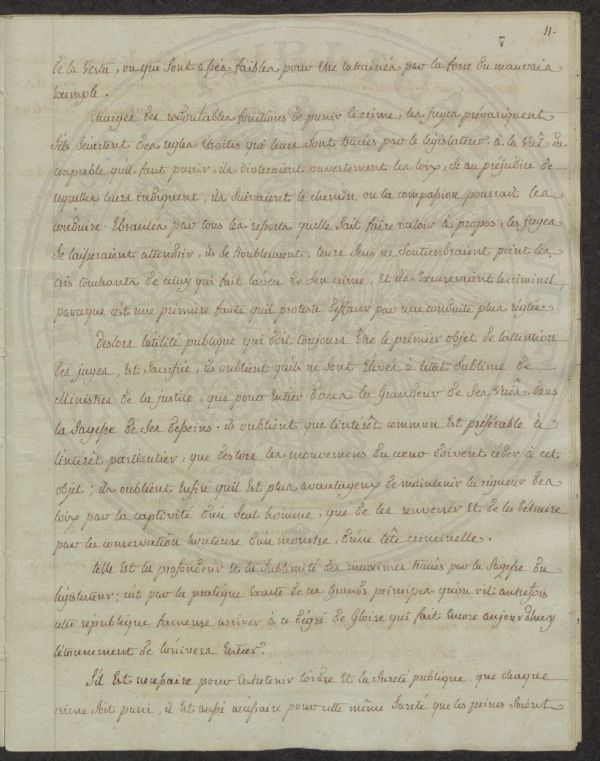 11.
7
de la vertu, ou qui sont assés faibles pour etre entrainés par la force du mauvais
exemple.
Chargés des redoutables fonctions de punir le crime, les juges prévariquent
s'ils s'écartent des regles étroites qui leurs sont tracées par le législateur. à la vuë du
coupable qu'il faut punir, ils violeraient ouvertement les loix, si au préjudice de
ce qu'elles leurs indiquent, ils suivaient le chemin ou la compassion pourrait les
conduire. Ebranlés par tous les ressorts qu'elle sait faire valoir à propos, les juges
se laisseraient attendrir, ils se troubleraient, leurs sens ne soutiendraient point les
cris touchants de celuy qui fait l'aveu de son crime, et ils excuseraient le criminel
parceque c'est une première faute qu'il proteste d'effacer par une conduite plus réglée.
Deslors l'utilité publique qui doit toujours être le premier objet de l'attention
des juges, est sacrifiée, ils oublient qu'ils ne sont élevés à l'état sublime de
Ministres de la justice, que pour entrer dans la grandeur de ses vuës, dans
la sagesse de ses desseins. ils oublient que l'intérêt commun est préférable à
l'intérêt particulier, que deslors les mouvemens du cœur doivent céder à cet
objet; ils oublient enfin qu'il est plus avantageux de maintenir la rigueur des
loix par la captivité d'un seul homme, que de les renverser et de les détruire
par la conservation honteuse d'un monstre, d'une tête criminelle.
telle est la profondeur et la sublimité des maximes tracées par la sagesse du
législateur; c'est par la pratique exacte de ces grands principes qu'on vit autrefois
cette republique fameuse arriver à ce dégré de Gloire qui fait encore aujourd'huy
l'étonnement de l'univers entier.
S'il est necessaire pour entretenir l'ordre et la sureté publique, que chaque
crime soit puni, il est aussi nécessaire pour cette même sureté que les peines soient